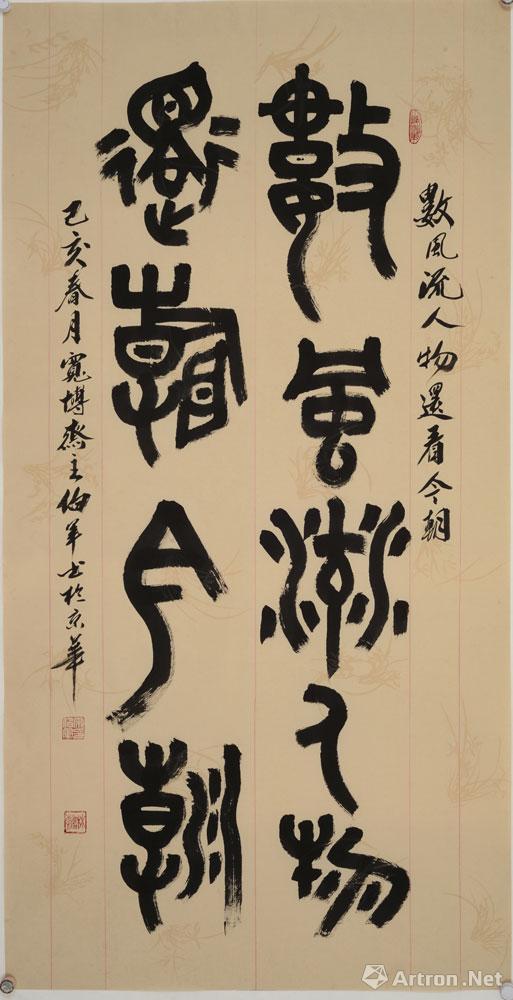 數風流人物還看今朝
數風流人物
還看今朝
己亥春月寬博齋主伯书於京華
Artron.Net